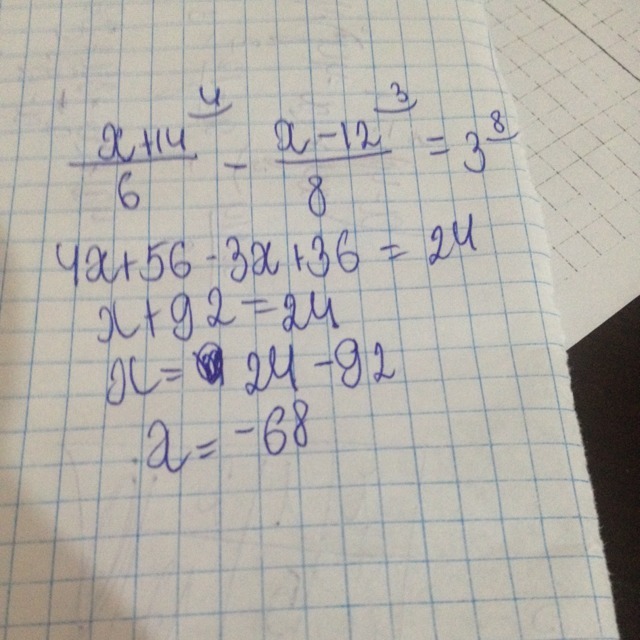 (x+14)/6 ⁴ - (x-12)/8 ³ = 3 ⁸
4x+56-3x+36=24
x+92=24
x=24-92
x=-68